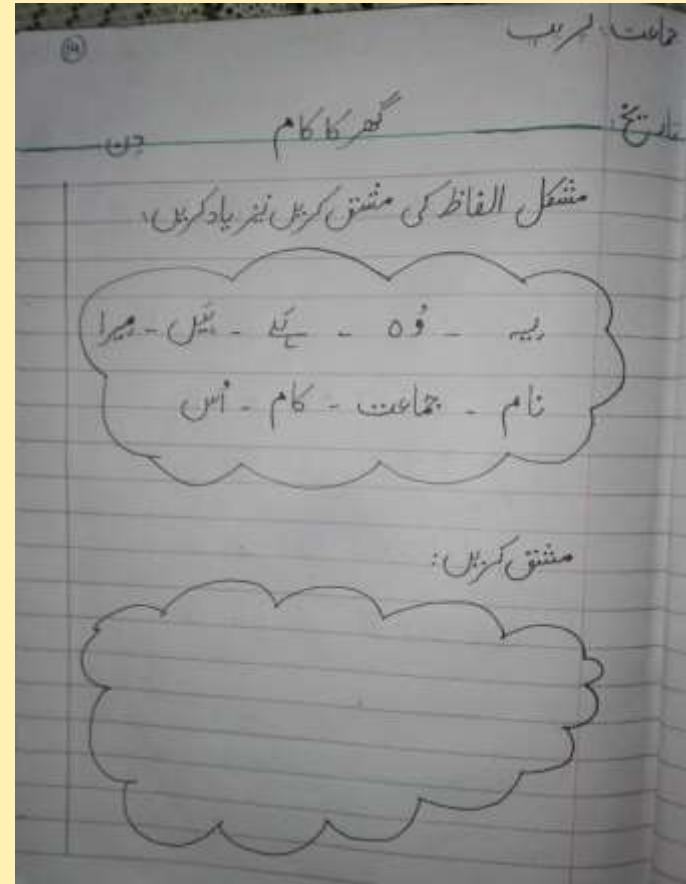 جماعت: پریپ
۱۴
تاریخ: گھر کا کام دن
مشکل الفاظ کی مشق کریں نیز یاد کریں:
یہ - وُہ - ہَے - ہَیں - میرا
نام - جماعت - کام - اُس
مشق کریں: